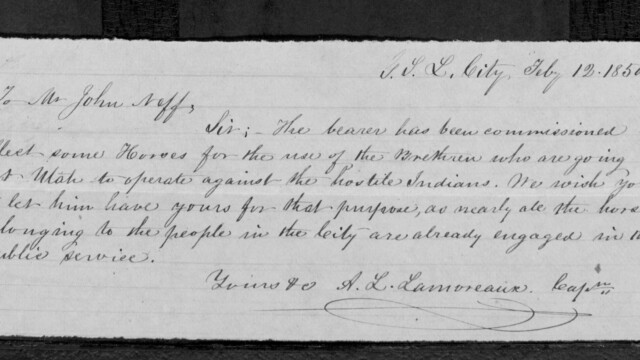 G. S. L. City, Feby 12. 1850
To Mr John Neff,
Sir; - The bearer has been commissioned
llect some Horses for the use of the Brethren who are going
t Utah to operate against the hostile Indians. We wish Yo
let him have yours for that purpose, as nearly all the hors
longing to the people in the City are already engaged in th
ublic service.
Yours &c A. L. Lamoreaux. Capn